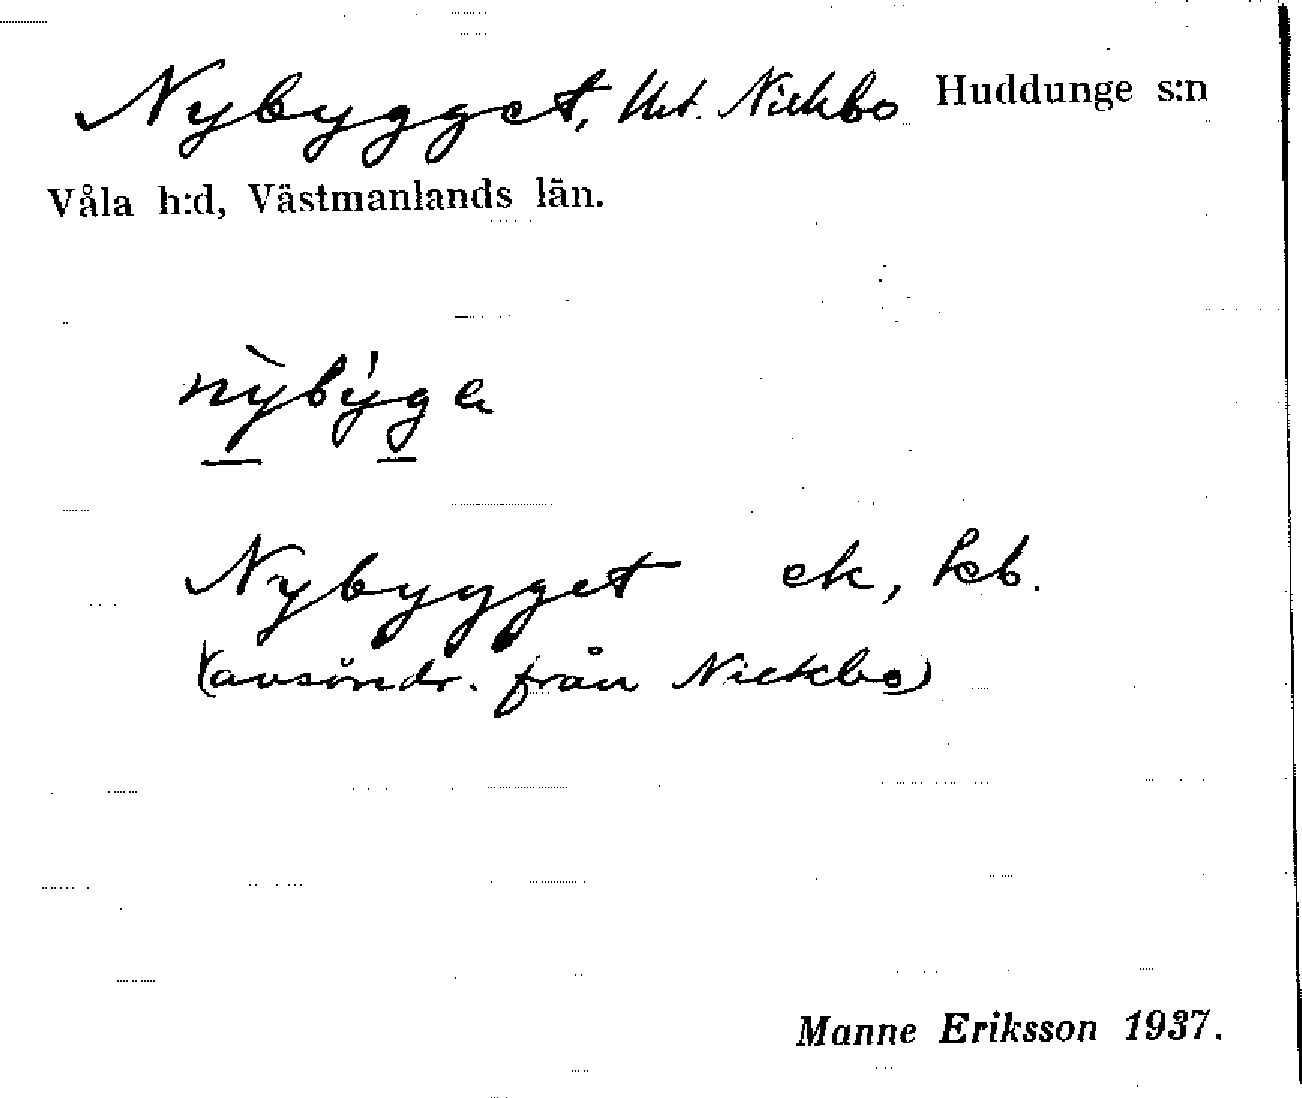 Nybygget, Nickbo Huddunge s:n
Våla h:d, Västmanlands län.
Nybygget ek, kb.
(avsöndr. från Nickbo)
Manne Eriksson 1937.